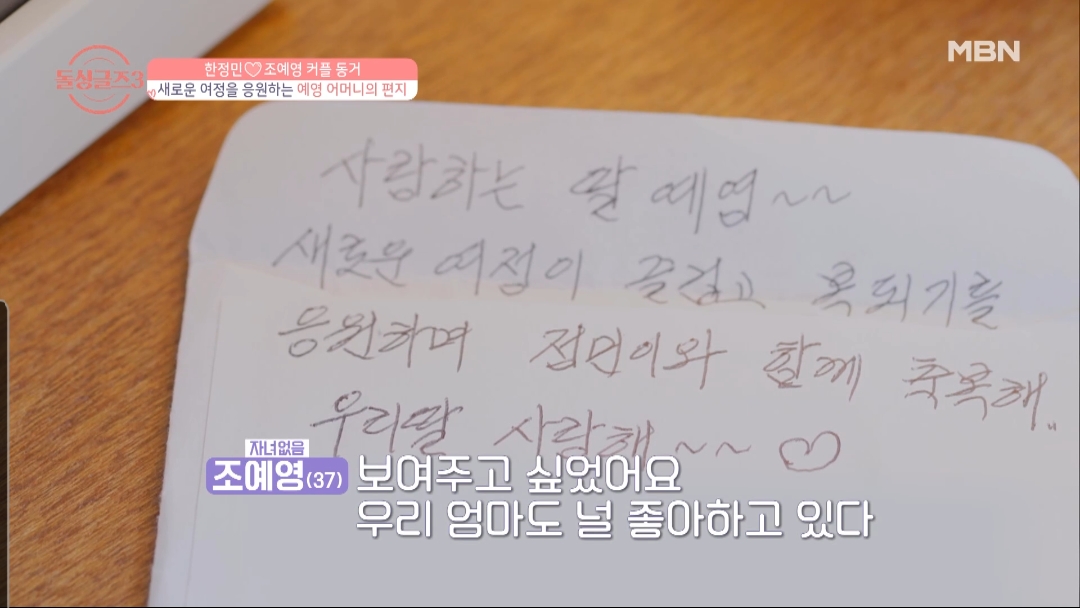 돌싱글즈3
한정민♡조예영 커플 동거
새로운 여정을 응원하는 예영 어머니의 편지
MBN
사랑하는 딸 예영~~
새로운 여정이 즐겁고 복되기를
응원하며 정민이와 함께 축복해"
우리딸 사랑해~~♡
자녀없음
조예영(37) 보여주고 싶었어요
우리 엄마도 널 좋아하고 있다